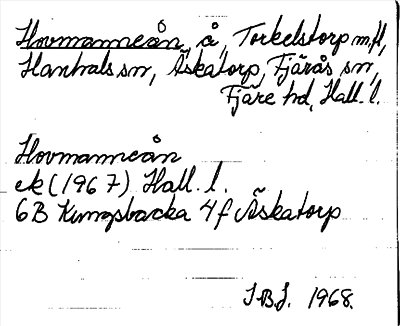 Hovmanneån, å, Torkelstorp m.fl.,
Hanhals sn, Äskatorp, Fjärås sn,
Fjäre hd, Hall. l.
Hovmanneån
ek (1967) Hall. l.
6B Kungsbacka 4f Äskatorp
I.B.J. 1968.